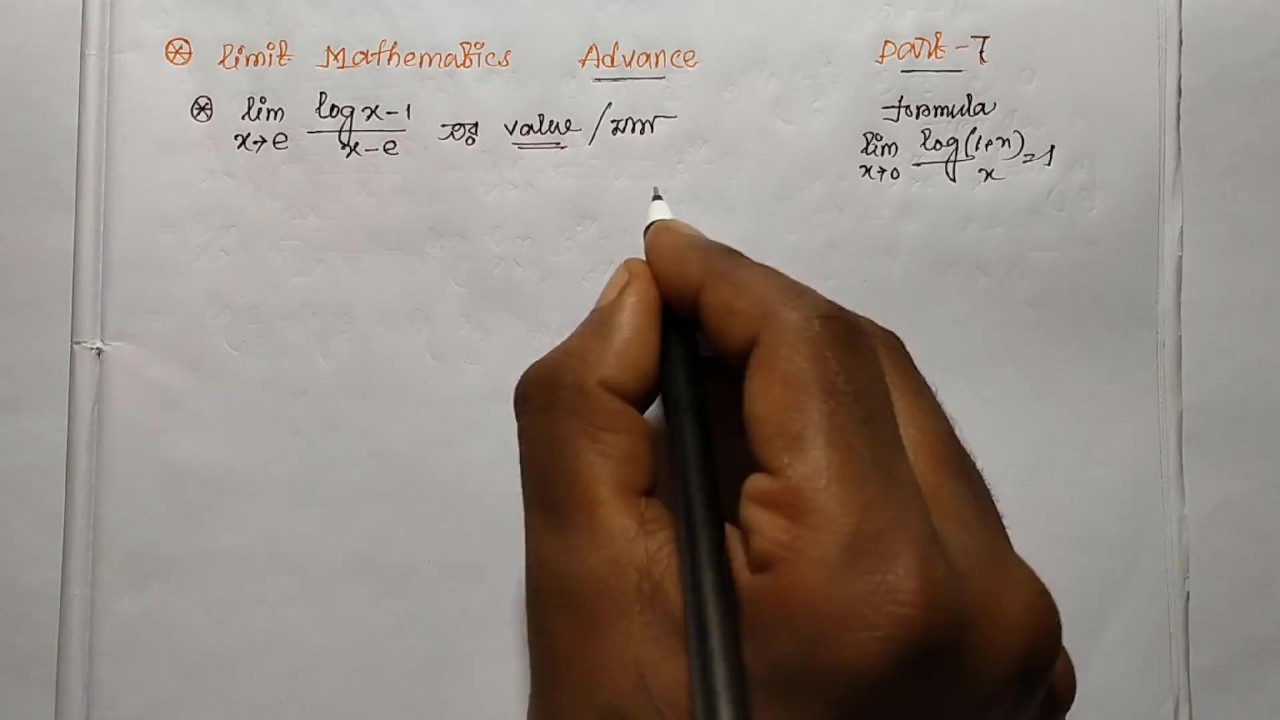 Limit Mathematics Advance
Part-7
lim x→e (log x-1)/(x-e) এর value/মান
formula
lim x→0 log(1+x)/x = 1